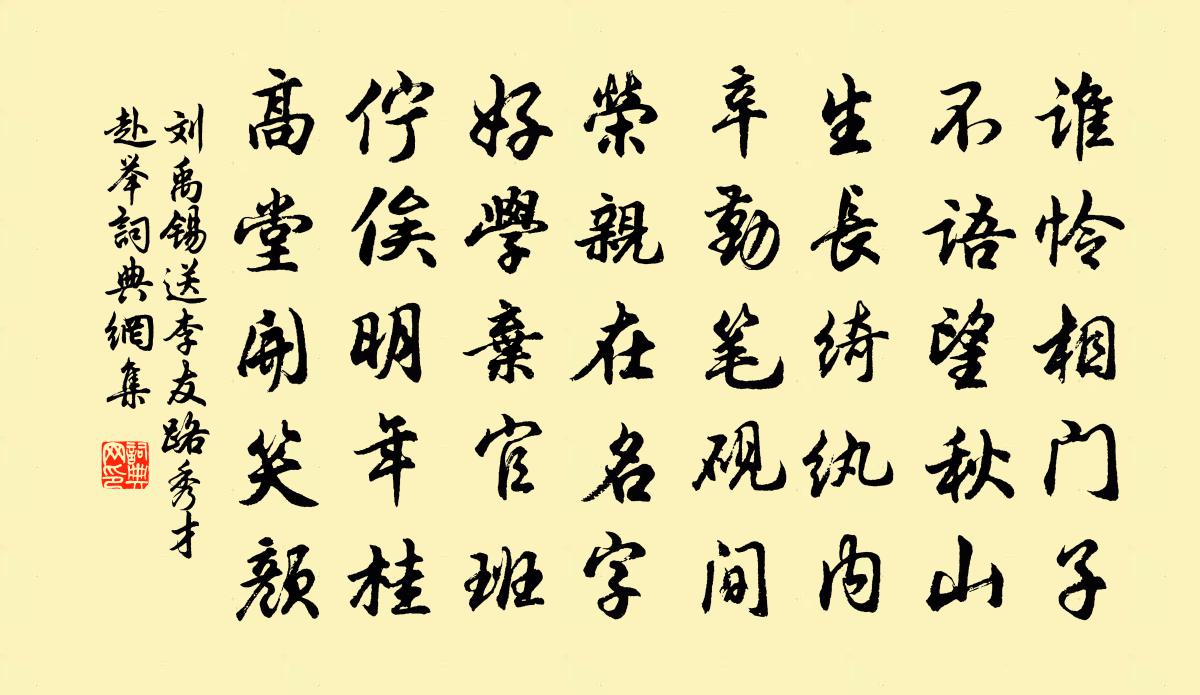 谁怜相门子
不语望秋山
生长绮纨内
辛勤笔砚间
荣親在名字
好學棄官班
佇俟明年桂
高堂開笑颜
刘禹锡送李友路秀才
赴举詞典網集
詞典
网印